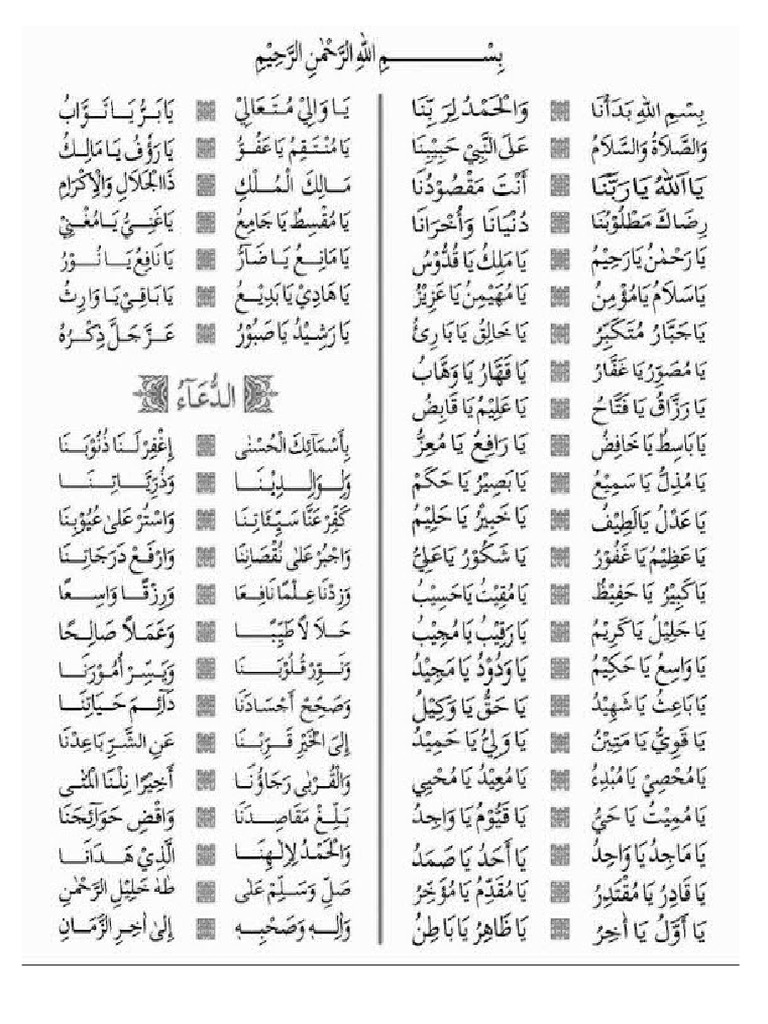 بِسْـــــمِ اللهِ الرَّحْمٰنِ الرَّحِيْمِ
بِسْمِ اللهِ بَدَأْنَا وَالْحَمْدُ لِرَبِّنَا
وَالصَّلَاةُ وَالسَّلَامُ عَلَى النَّبِيْ حَبِيْبِنَا
يَا اَللهُ يَا رَبَّنَا أَنْتَ مَقْصُوْدُنَا
رِضَاكَ مَطْلُوْبُنَا دُنْيَانَا وَأُخْرَانَا
يَا رَحْمٰنُ يَا رَحِيْمُ يَا مَلِكُ يَا قُدُّوْسُ
يَا سَلَامُ يَا مُؤْمِنُ يَا مُهَيْمِنُ يَا عَزِيْزُ
يَا جَبَّارُ مُتَكَبِّرُ يَا خَالِقُ يَا بَارِئُ
يَا مُصَوِّرُ يَا غَفَّارُ يَا قَهَّارُ يَا وَهَّابُ
يَا رَزَّاقُ يَا فَتَّاحُ يَا عَلِيْمُ يَا قَابِضُ
يَا بَاسِطُ يَا خَافِضُ يَا رَافِعُ يَا مُعِزُّ
يَا مُذِلُّ يَا سَمِيْعُ يَا بَصِيْرُ يَا حَكَمُ
يَا عَدْلُ يَالَطِيْفُ يَا خَبِيْرُ يَا حَلِيْمُ
يَا عَظِيْمُ يَا غَفُوْرُ يَا شَكُوْرُ يَاعَلِيُّ
يَا كَبِيْرُ يَا حَفِيْظُ يَا مُقِيْتُ يَاحَسِيْبُ
يَا جَلِيْلُ يَاكَرِيْمُ يَا رَقِيْبُ يَا مُجِيْبُ
يَا وَاسِعُ يَا حَكِيْمُ يَا وَدُوْدُ يَا مَجِيْدُ
يَا بَاعِثُ يَا شَهِيْدُ يَا حَقُّ يَا وَكِيْلُ
يَا قَوِيُّ يَا مَتِيْنُ يَا وَلِيُّ يَا حَمِيْدُ
يَا مُحْصِيْ يَا مُبْدِءُ يَا مُعِيْدُ يَا مُحْيِي
يَا مُمِيْتُ يَا حَيُّ يَا قَيُّوْمُ يَا وَاجِدُ
يَا مَاجِدُ يَا وَاحِدُ يَا أَحَدُ يَا صَمَدُ
يَا قَادِرُ يَا مُقْتَدِرُ يَا مُقَدِّمُ يَا مُؤَخِّرُ
يَا أَوَّلُ يَا اٰخِرُ يَا ظَاهِرُ يَا بَاطِنُ
يَا وَالِيْ مُتَعَالِيْ يَا بَرُّ يَا تَوَّابُ
يَا مُنْتَقِمُ يَا عَفُوُّ يَا رَؤُفُ يَا مَالِكُ
مَالِكَ الْمُلْكِ ذَا الْجَلَالِ وَالْإِكْرَامِ
يَا مُقْسِطُ يَا جَامِعُ يَا غَنِيُّ يَا مُغْنِيْ
يَا مَانِعُ يَا ضَآرُّ يَا نَافِعُ يَا نُوْرُ
يَا هَادِيْ يَا بَدِيْعُ يَا بَاقِيْ يَا وَارِثُ
يَا رَشِيْدُ يَا صَبُوْرُ عَزَّ جَلَّ ذِكْرُهُ
الدُّعَآءُ
بِأَسْمَائِكَ الْحُسْنٰى إِغْفِرْ لَنَا ذُنُوْبَنَا
وَلِوَالِدِيْنَا وَذُرِّيَّاتِنَا
كَفِّرْ عَنَّا سَيِّئَاتِنَا وَاسْتُرْ عَلىٰ عُيُوْبِنَا
وَاجْبُرْ عَلىٰ نُقْصَانِنَا وَارْفَعْ دَرَجَاتِنَا
وَزِدْنَا عِلْمًا نَافِعَا وَرِزْقًا وَاسِعًا
حَلَالًا طَيِّبًا وَعَمَلًا صَالِحًا
وَنَوِّرْ قُلُوْبَنَا وَيَسِّرْ أُمُوْرَنَا
وَصَحِّحْ أَجْسَادَنَا دَآئِمَ حَيَاتِنَا
إِلَى الْخَيْرِ قَرِّبْنَا عَنِ الشَّرِّ بَاعِدْنَا
وَالْقُرْبٰى رَجَاؤُنَا أَخِيْرًا نِلْنَا الْمُنٰى
بَلِّغْ مَقَاصِدَنَا وَاقْضِ حَوَائِجَنَا
وَالْحَمْدُ لِإِلٰهِنَا الَّذِيْ هَدَانَا
صَلِّ وَسَلِّمْ عَلٰى طٰهٰ خَلِيْلِ الرَّحْمٰنِ
وَاٰلِهٖ وَصَحْبِهٖ إِلىٰ اٰخِرِ الزَّمَانِ